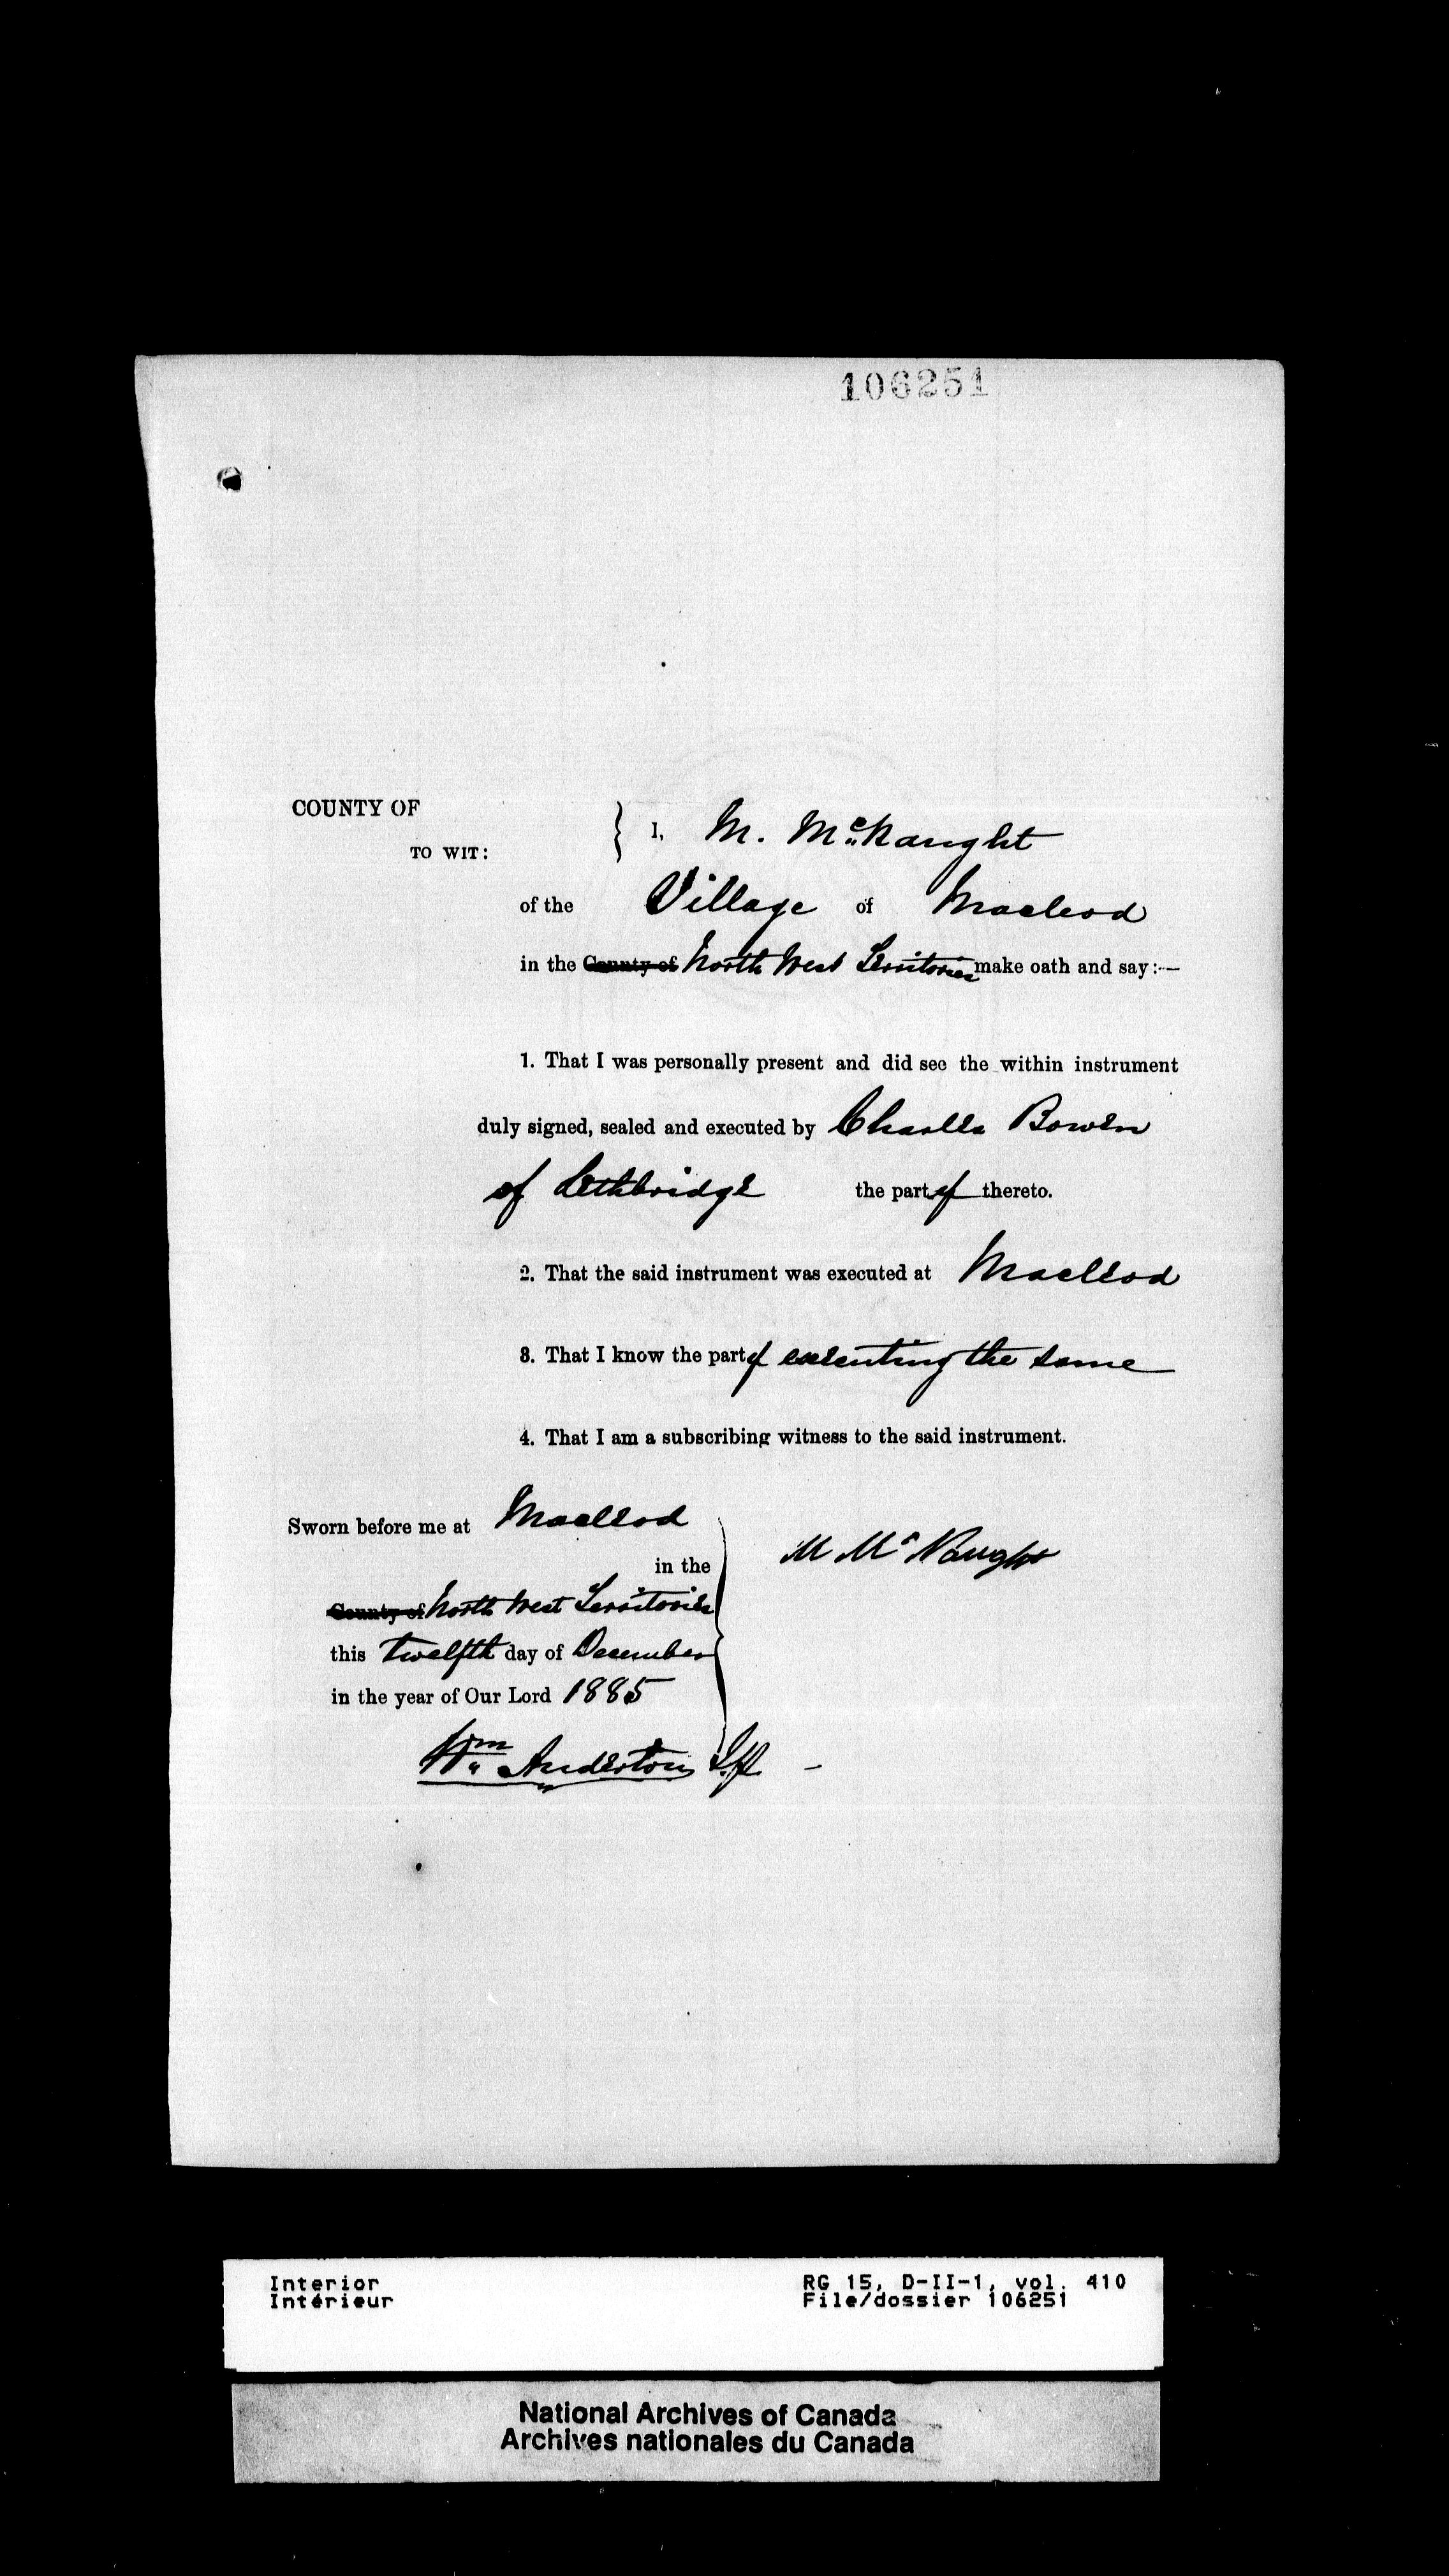 106251
COUNTY OF
TO WIT:
} I, M. McNaught
of the Village of Macleod
in the County of North West Territories make oath and say:—
1. That I was personally present and did see the within instrument
duly signed, sealed and executed by Charles Bowen
of Lethbridge the party thereto.
2. That the said instrument was executed at Macleod
3. That I know the party executing the same
4. That I am a subscribing witness to the said instrument.
Sworn before me at Macleod
in the
County of North West Territories
this twelfth day of December
in the year of Our Lord 1885
M McNaught
Wm Anderton J.P.
Interior
Intérieur
RG 15, D-II-1, vol. 410
File/dossier 106251
National Archives of Canada
Archives nationales du Canada